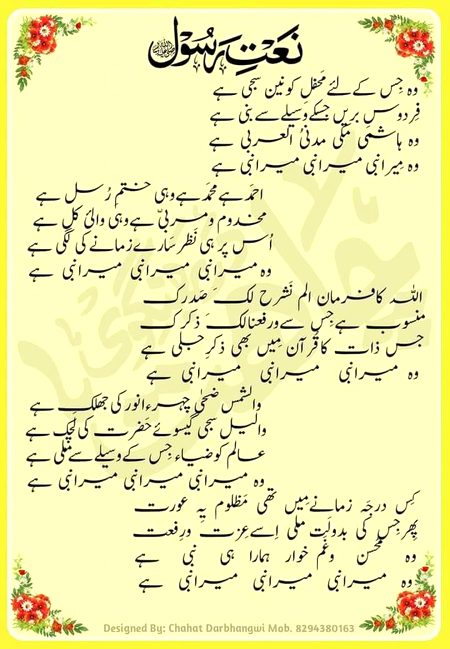 نعتِ رسول ﷺ
وہ جِس کے لئے محفلِ کونین سجی ہے
فِردوسِ بریں جسکے وَسیلے سے بنی ہے
وہ ہاشمی مَکی مدنیُ العربی ہے
وہ مِیرا نبی میرا نبی میرا نبی ہے
احمَد ہے محمَد ہے وہی ختمِ رُسل ہے
مخدوم و مربیّ ہے وہی والئ کل ہے
اُس پر ہی نَظر سَارے زمانے کی لگی ہے
وہ میرا نبی میرا نبی میرا نبی ہے
اللہ کا فرمان الم نَشرح لکَ صَدرک
منسوب ہے جِس سے ورفعنا لکَ ذِکرک
جس ذات کا قُرآن میں بھی ذکرِ جلی ہے
وہ میرا نبی میرا نبی میرا نبی ہے
والشمس ضحٰی چہرءِ انور کی جھلک ہے
والیل سجی گیسوئے حَضرت کی لچک ہے
عالم کو ضیاء جِس کے وسیلے سے مِلی ہے
وہ میرا نبی میرا نبی میرا نبی ہے
کِس درجَہ زمانے میں تھی مَظلوم یِہ عورت
پِھر جِس کی بدولَت ملی اِسے عِزت ورِفعت
وہ محسن وغَم خوار ہمارا ہی نبی ہے
وہ میرا نبی میرا نبی میرا نبی ہے
Designed By: Chahat Darbhangwi Mob. 8294380163